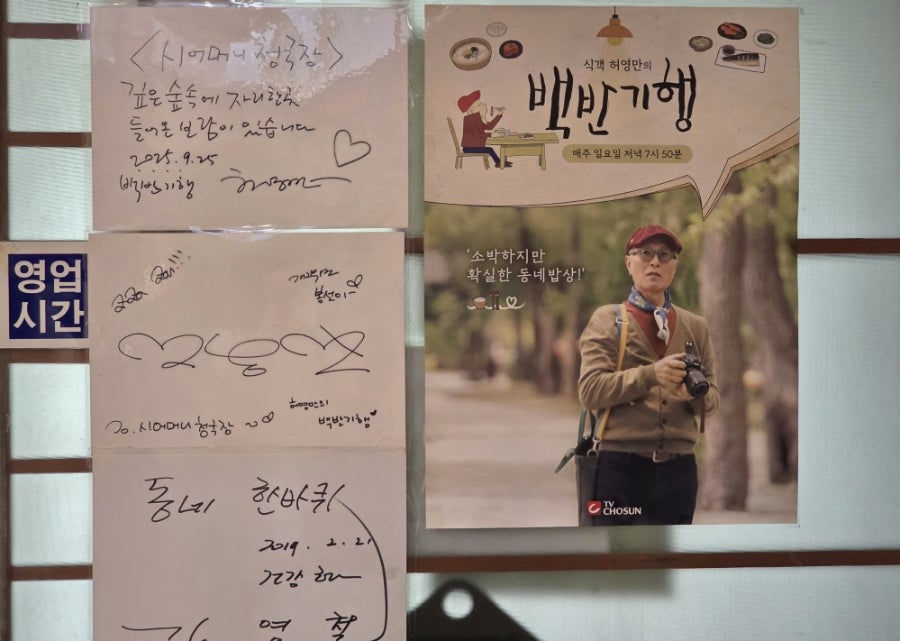 <시어머니 청국장>
깊은 숲속에 자리한곳
들어온 보람이 있습니다
2025. 9. 25
백반기행
영업
시간
개그우먼
봉선이~
To. 시어머니 청국장
허영만의
백반기행
동네 한바퀴
2019. 2. 21
건강하소
김영철
식객 허영만의
백반기행
매주 일요일 저녁 7시 50분
'소박하지만
확실한 동네밥상!'
TV
CHOSUN